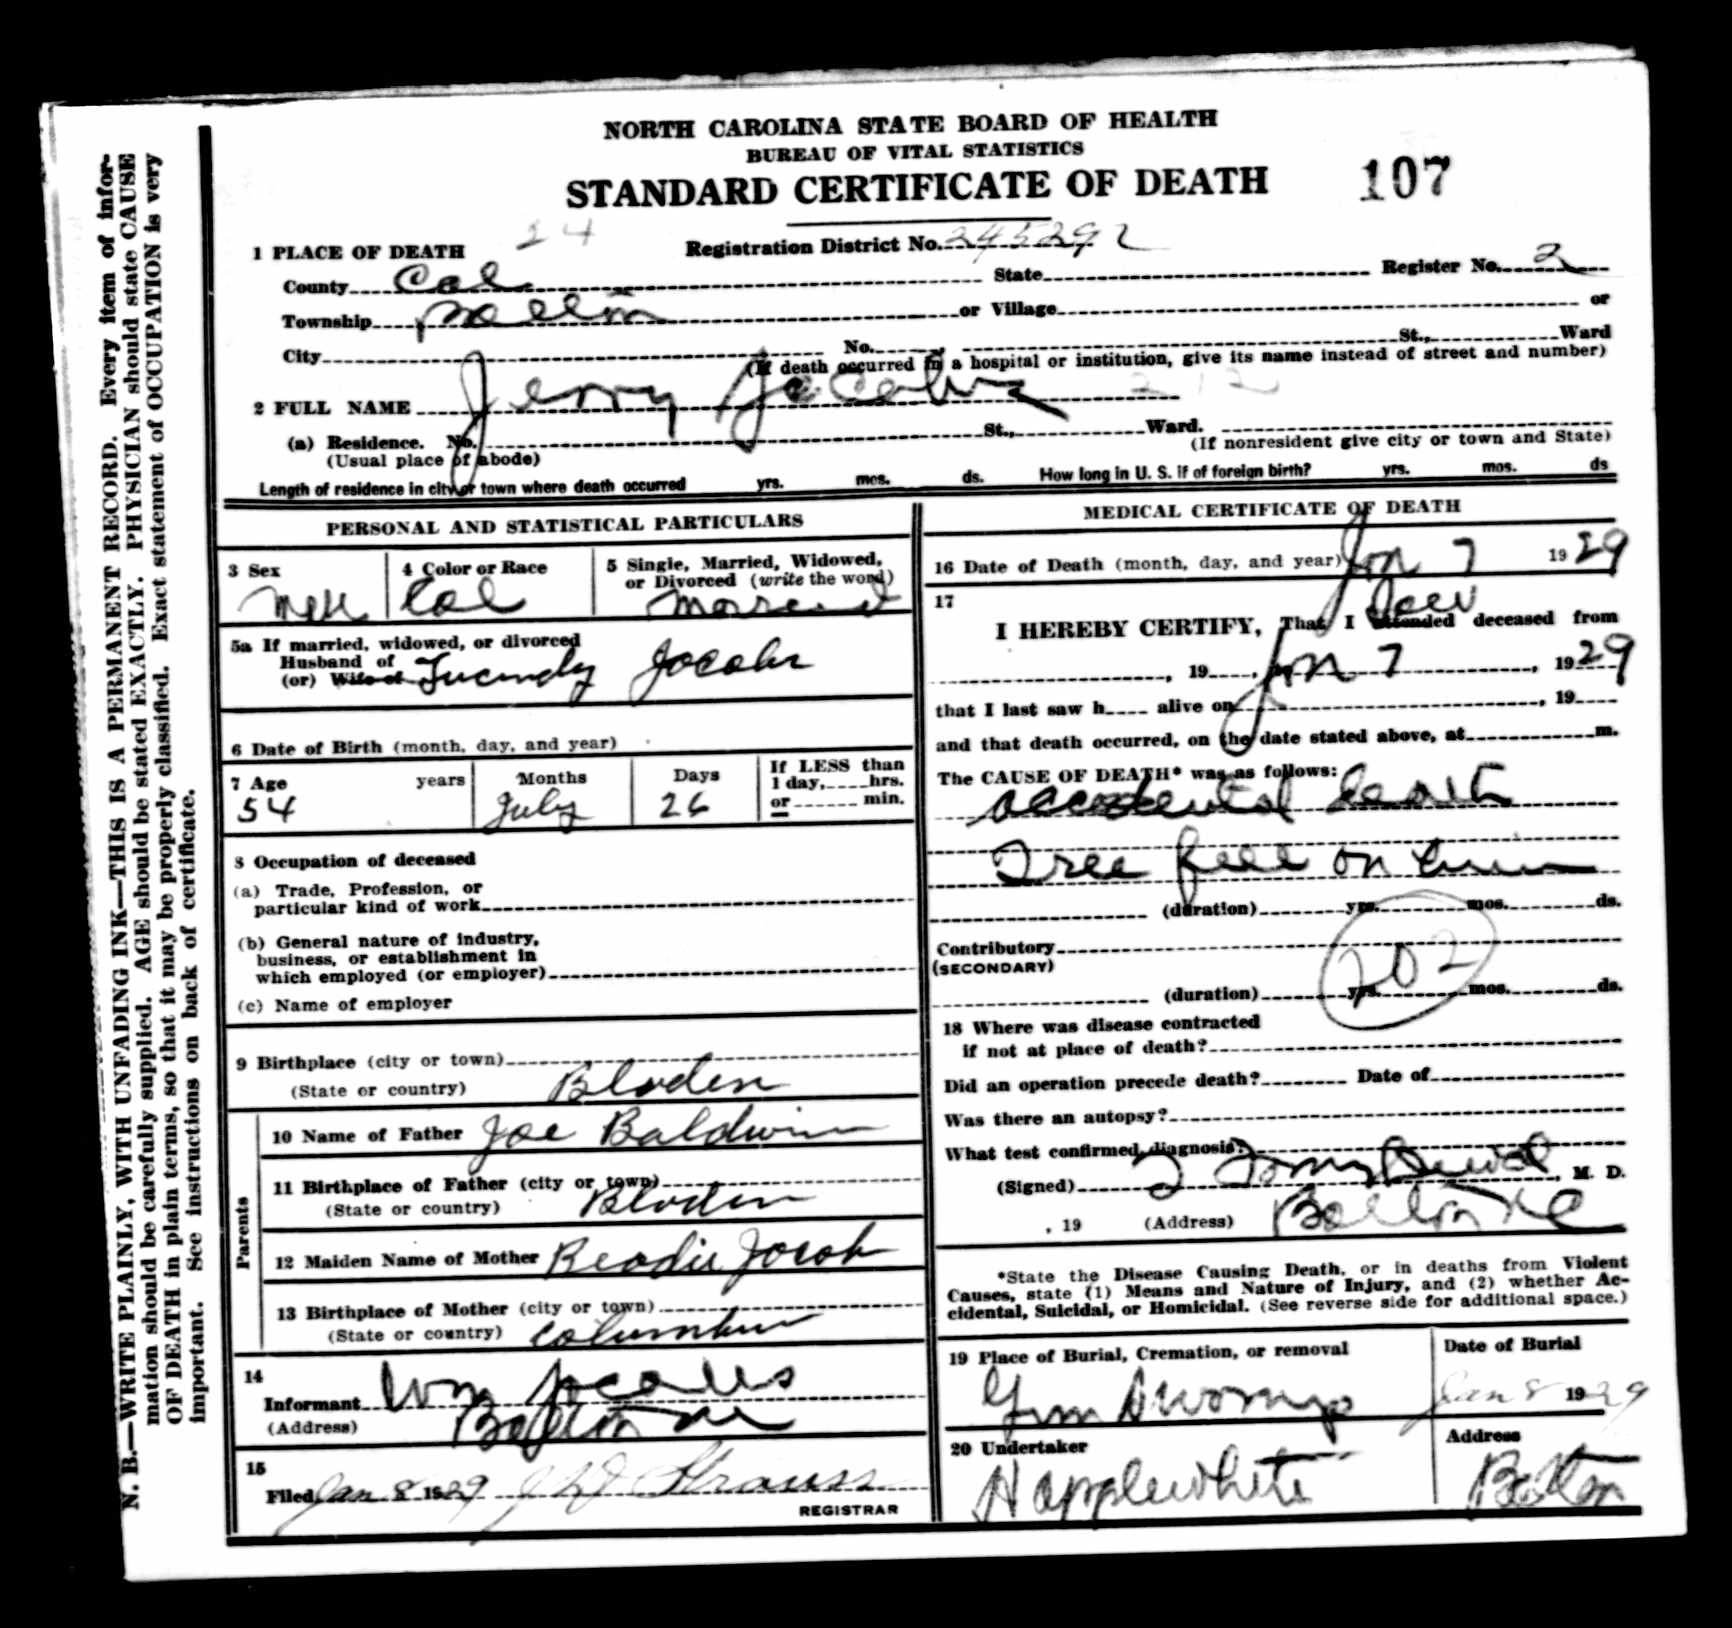 NORTH CAROLINA STATE BOARD OF HEALTH
BUREAU OF VITAL STATISTICS
STANDARD CERTIFICATE OF DEATH 107
24
1 PLACE OF DEATH Registration District No. 245292
County Col State Register No. 2
Township Bolton or Village or
City No. , St., Ward
(If death occurred in a hospital or institution, give its name instead of street and number)
2 FULL NAME Jerry Jacobs 212
(a) Residence. No. St., Ward.
(Usual place of abode) (If nonresident give city or town and State)
Length of residence in city or town where death occurred yrs. mos. ds. How long in U. S. if of foreign birth? yrs. mos. ds
PERSONAL AND STATISTICAL PARTICULARS
3 Sex
4 Color or Race
5 Single, Married, Widowed,
or Divorced (write the word)
Male Col Married
5a If married, widowed, or divorced
Husband of
(or) Wife of Jacobs
6 Date of Birth (month, day, and year)
7 Age years Months Days If LESS than
1 day, hrs.
or min.
54 July 26
8 Occupation of deceased
(a) Trade, Profession, or
particular kind of work
(b) General nature of industry,
business, or establishment in
which employed (or employer)
(c) Name of employer
9 Birthplace (city or town)
(State or country) Bladen
Parents
10 Name of Father Joe Baldwin
11 Birthplace of Father (city or town)
(State or country) Bladen
12 Maiden Name of Mother Jacobs
13 Birthplace of Mother (city or town)
(State or country) Columbus
14
Informant Wm Jacobs
(Address) Bolton NC
15
Filed Jan 8 1929 Strauss
REGISTRAR
MEDICAL CERTIFICATE OF DEATH
16 Date of Death (month, day, and year) Jan 7 1929
17
I HEREBY CERTIFY, That I attended deceased from
, 19 , Jan 7 , 1929
that I last saw h alive on , 19
and that death occurred, on the date stated above, at m.
The CAUSE OF DEATH* was as follows:
accidental death
Tree fell on him
(duration) yrs. mos. ds.
Contributory
(SECONDARY)
202
(duration) yrs. mos. ds.
18 Where was disease contracted
if not at place of death?
Did an operation precede death? Date of
Was there an autopsy?
What test confirmed diagnosis?
(Signed) , M. D.
, 19 (Address) Bolton NC
*State the Disease Causing Death, or in deaths from Violent
Causes, state (1) Means and Nature of Injury, and (2) whether Ac-
cidental, Suicidal, or Homicidal. (See reverse side for additional space.)
19 Place of Burial, Cremation, or removal Date of Burial
Gum Swamp Jan 8 1929
20 Undertaker Address
H Applewhite Bolton
N. B.—WRITE PLAINLY, WITH UNFADING INK—THIS IS A PERMANENT RECORD. Every item of infor-
mation should be carefully supplied. AGE should be stated EXACTLY. PHYSICIAN should state CAUSE
OF DEATH in plain terms, so that it may be properly classified. Exact statement of OCCUPATION is very
important. See instructions on back of certificate.